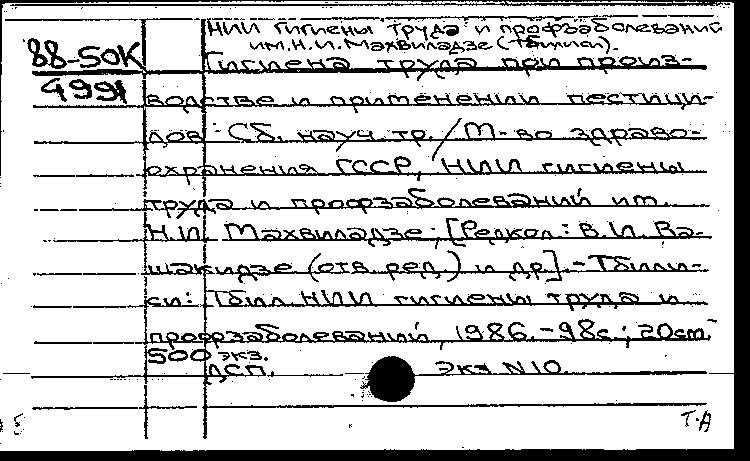 НИИ гигиены труда и профзаболеваний
им. Н.И. Махвиладзе (Тбилиси).
88-50К
Гигиена труда при произ-
4991
водстве и применении пестици-
дов : Сб. науч. тр. / М-во здраво-
охранения ГССР, НИИ гигиены
труда и профзаболеваний им.
Н.И. Махвиладзе ; [Редкол.: В.И. Ва-
шакидзе (отв. ред.) и др.]. - Тбили-
си : Тбил. НИИ гигиены труда и
профзаболеваний, 1986. - 98с ; 20см.
500 экз.
ДСП. Экз N10.
Т.А